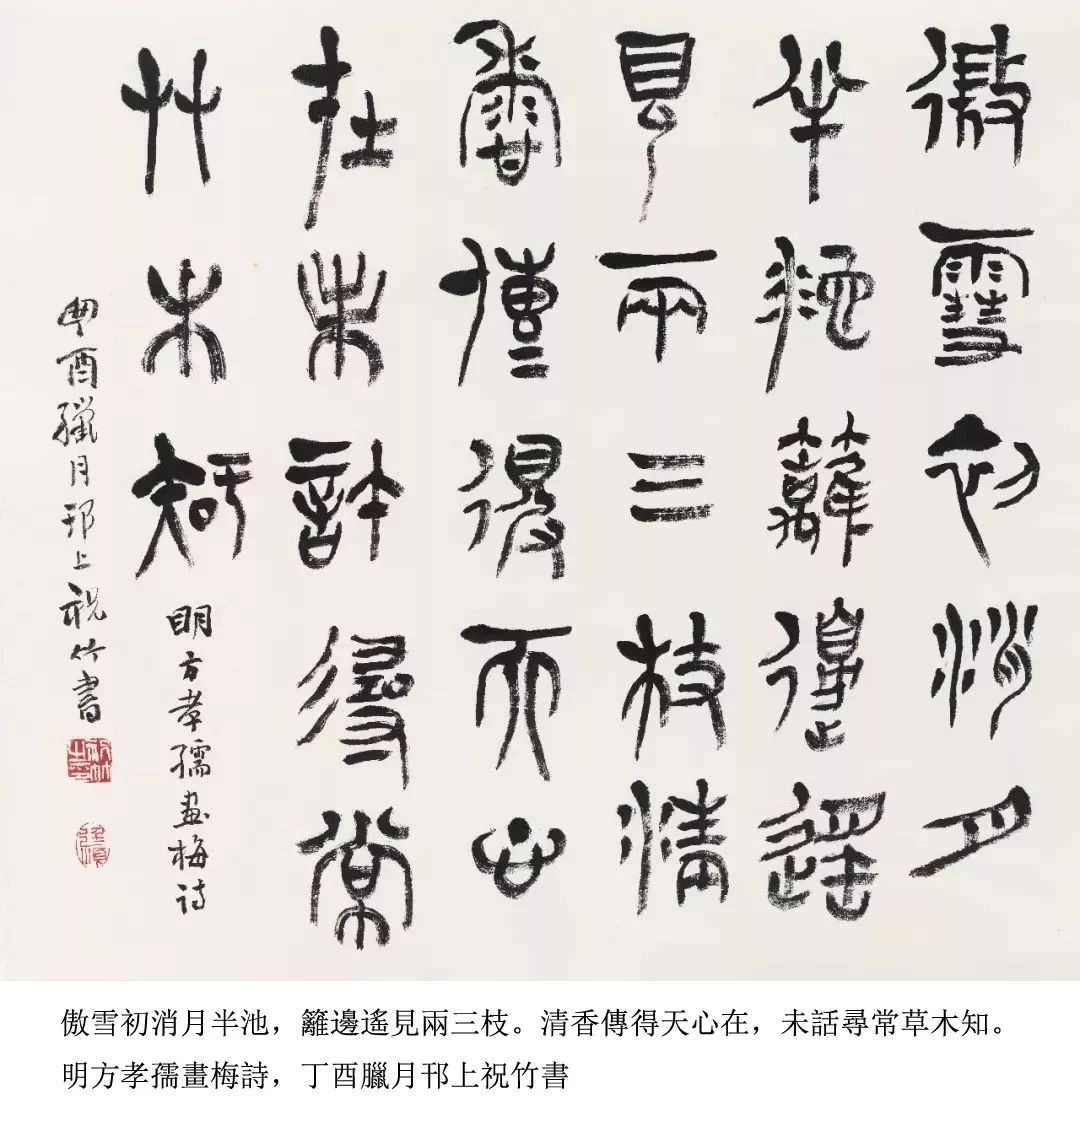 傲雪初消月
半池籬邊遙
見兩三枝清
香傳得天心
在未許尋常
艸木知
明方孝孺畫梅詩
酉臘月邗上祝竹書
傲雪初消月半池，籬邊遙見兩三枝。清香傳得天心在，未話尋常草木知。
明方孝孺畫梅詩，丁酉臘月邗上祝竹書